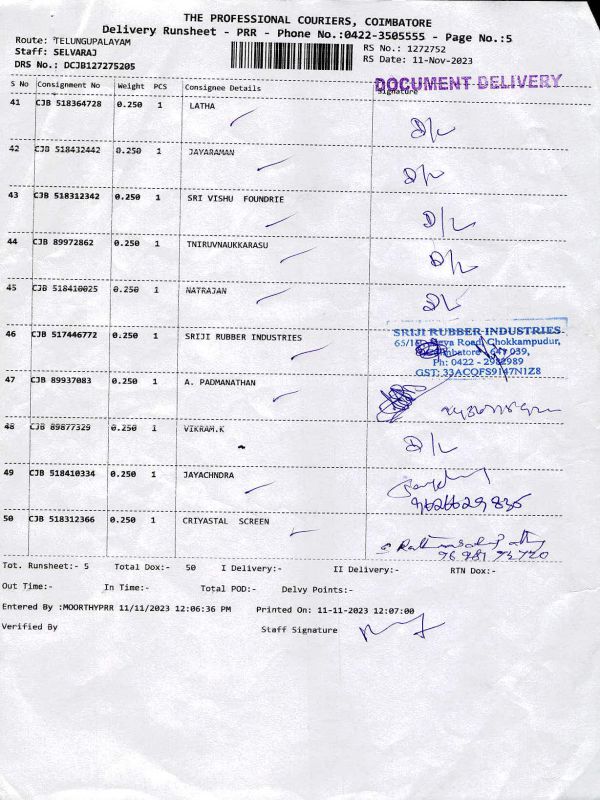 THE PROFESSIONAL COURIERS, COIMBATORE
Delivery Runsheet - PRR - Phone No.:0422-3505555 - Page No.:5
Route: TELUNGUPALAYAM
Staff: SELVARAJ
DRS No.: DCJB127275205
RS No.: 1272752
RS Date: 11-Nov-2023
DOCUMENT DELIVERY
S No Consignment No Weight PCS Consignee Details Signature
41 CJB 518364728 0.250 1 LATHA D/L
42 CJB 518432442 0.250 1 JAYARAMAN D/L
43 CJB 518312342 0.250 1 SRI VISHU FOUNDRIE D/L
44 CJB 89972862 0.250 1 TNIRUVNAUKKARASU D/L
45 CJB 518410025 0.250 1 NATRAJAN D/L
46 CJB 517446772 0.250 1 SRIJI RUBBER INDUSTRIES
SRIJI RUBBER INDUSTRIES
Road, Chokkampudur,
641 039,
Ph: 0422 - 2982989
GST: 33ACOFS9147N1Z8
47 CJB 89937083 0.250 1 A. PADMANATHAN
48 CJB 89877329 0.250 1 VIKRAM.K D/L
49 CJB 518410334 0.250 1 JAYACHNDRA
9626629835
50 CJB 518312366 0.250 1 CRIYASTAL SCREEN
Tot. Runsheet:- 5 Total Dox:- 50 I Delivery:- II Delivery:- RTN Dox:-
Out Time:- In Time:- Total POD:- Delvy Points:-
Entered By :MOORTHYPRR 11/11/2023 12:06:36 PM Printed On: 11-11-2023 12:07:00
Verified By Staff Signature